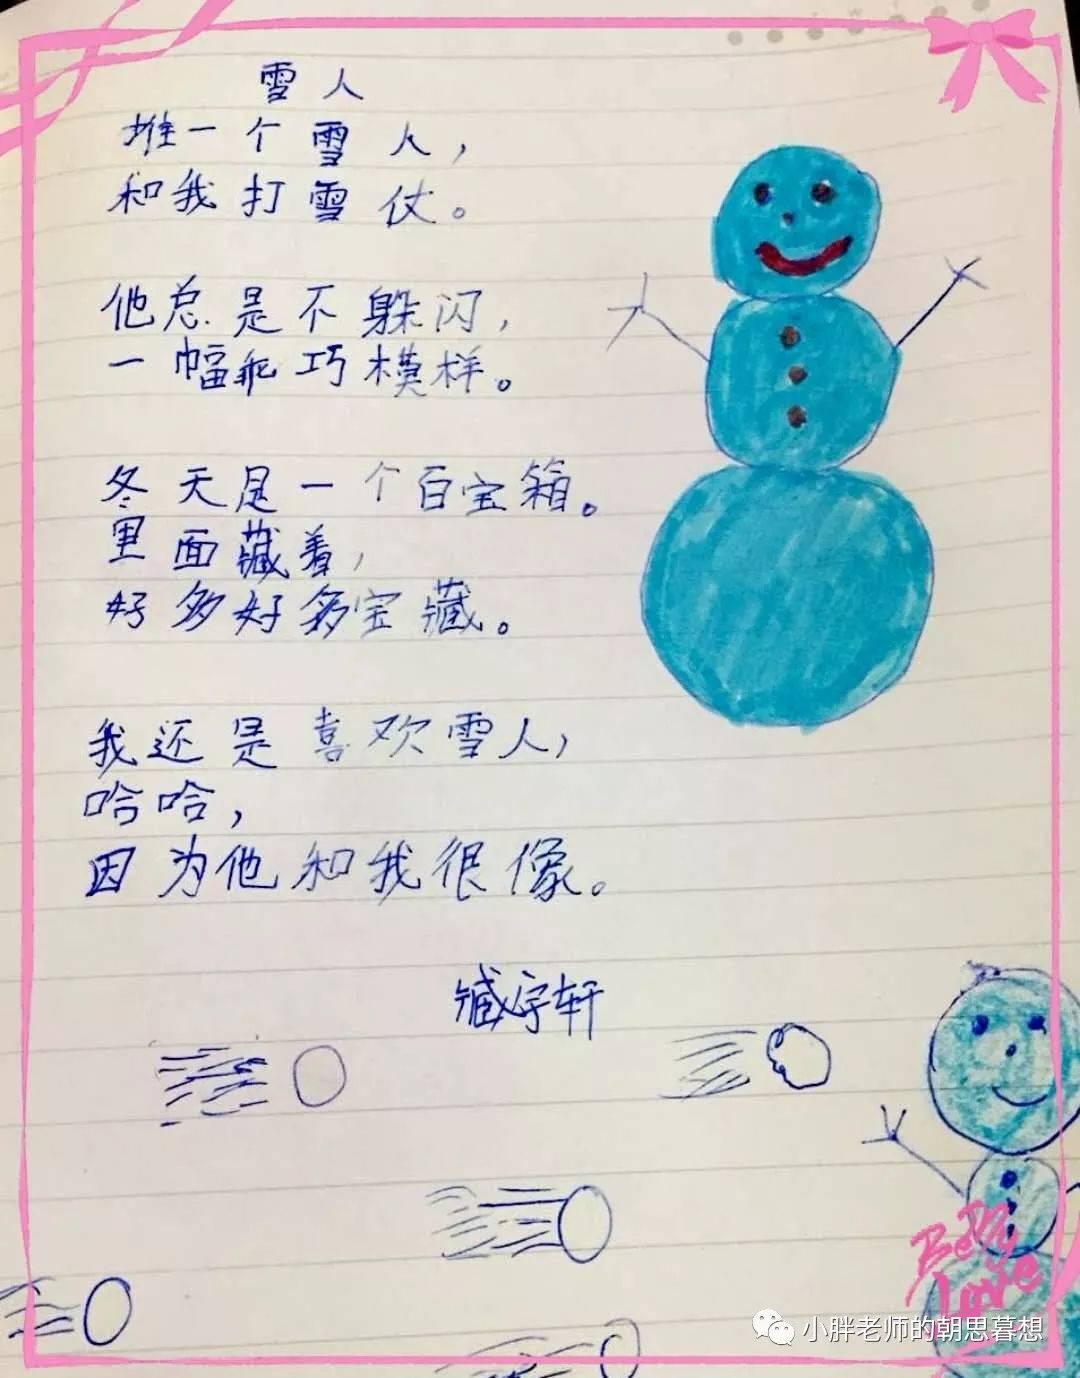 雪人
堆一个雪人，
和我打雪仗。
他总是不躲闪，
一幅乖巧模样。
冬天是一个百宝箱。
里面藏着，
好多好多宝藏。
我还是喜欢雪人，
哈哈，
因为他和我很像。
臧宇轩
Baby
Love
小胖老师的朝思暮想